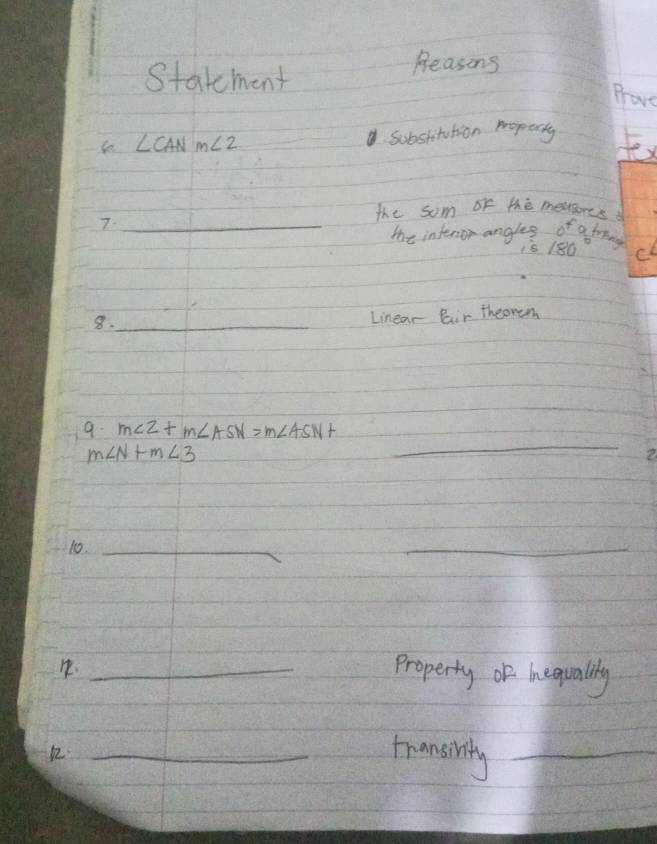 Statement
Reasons
Prove
6. ∠CAN m∠2
Substitution Property
7.
the sum of the measures
the interior angles of a
is 180°
8.
Linear Pair theorem
9. m∠2 + m∠ASN = m∠ASN +
m∠N + m∠3
10.
Property of Inequality
12.
transivity